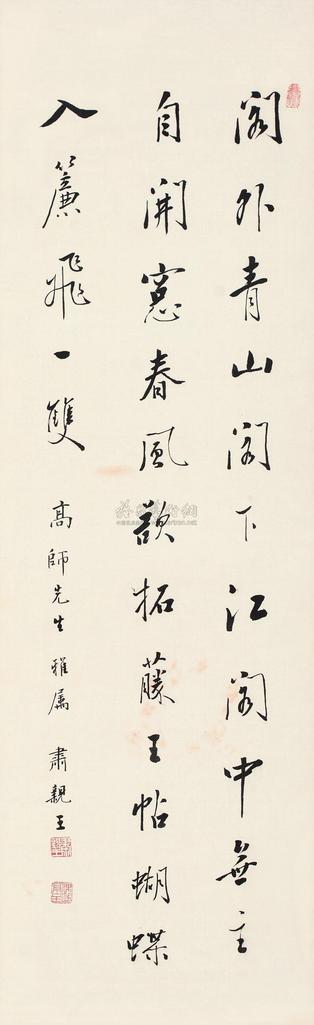 閣外青山閣下江閣中無主
自開窓春風欲拓藤王帖蝴蝶
入簾飛一雙
高師先生雅屬 肅親王